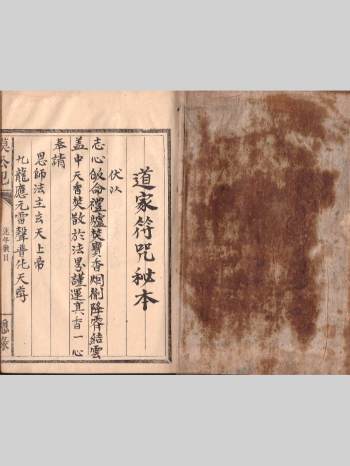 道家符咒秘本
伏以
志心皈命禮爐焚寶香烟衝降霄結雲
盖中天香焚散於法界謹運真香一心
奉請
恩師法主玄天上帝
九龍應元雷聲普化天尊